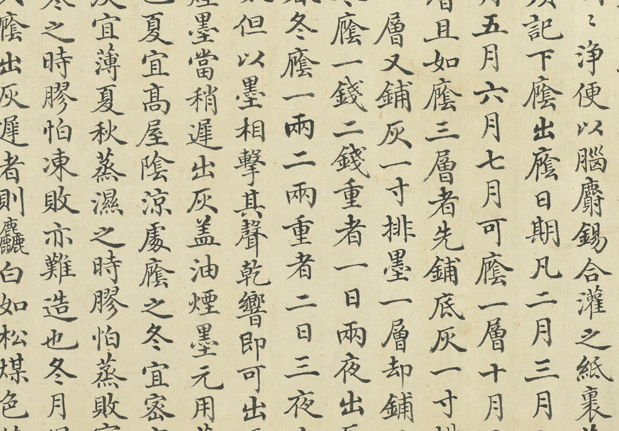 淨便以腦麝錫合灌之紙裏
記下廕出廕日期凡二月三月
五月六月七月可廕一層十月
且如廕三層者先鋪底灰一寸
層又鋪灰一寸排墨一層却鋪
廕一錢二錢重者一日兩夜出
冬廕一兩二兩重者二日三夜
但以墨相擊其聲乾響即可出
煙墨當稍遲出灰盖油煙墨元用
夏宜髙屋隂涼處廕之冬宜密
宜薄夏秋蒸濕之時膠怕蒸敗
之時膠怕凍敗亦難造也冬月
廕出灰遲者則麤白如松煤色